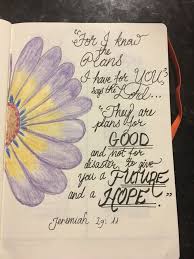 "For I know
the Plans
I have for YOU,"
says the Lord...
"They are
plans for
GOOD
and not for
disaster, to give
you a FUTURE
and a HOPE."
Jeremiah 29:11